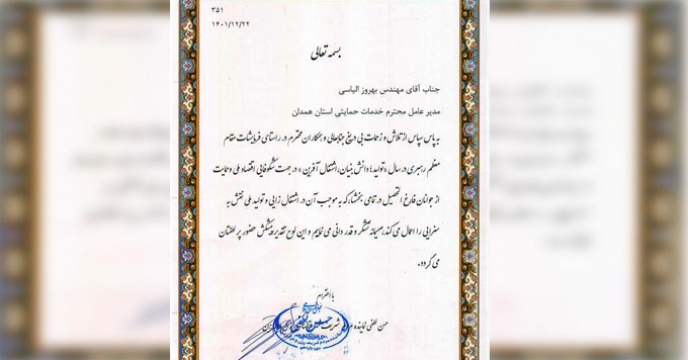 ۳۵۱
۱۴۰۱/۱۲/۲۲
بسمه تعالی
جناب آقای مهندس بهروز الیاسی
مدیر عامل محترم خدمات حمایتی استان همدان
به پاس سپاس از تلاش و زحمات بی دریغ جنابعالی و همکاران محترم در راستای فرمایشات مقام
معظم رهبری در سال «تولید؛ دانش بنیان، اشتغال آفرین» در جهت شکوفایی اقتصاد ملی و حمایت
از جوانان فارغ التحصیل در تمامی بخشها، که به موجب آن در اشتغال زایی و تولید ملی نقش به
سزایی را اعمال می کند، صمیمانه تشکر و قدر دانی می نمایم و این لوح تقدیر پیشکش حضور پر لطفتان
می گردد.
با احترام
حسن لطفی نماینده مردم شریف